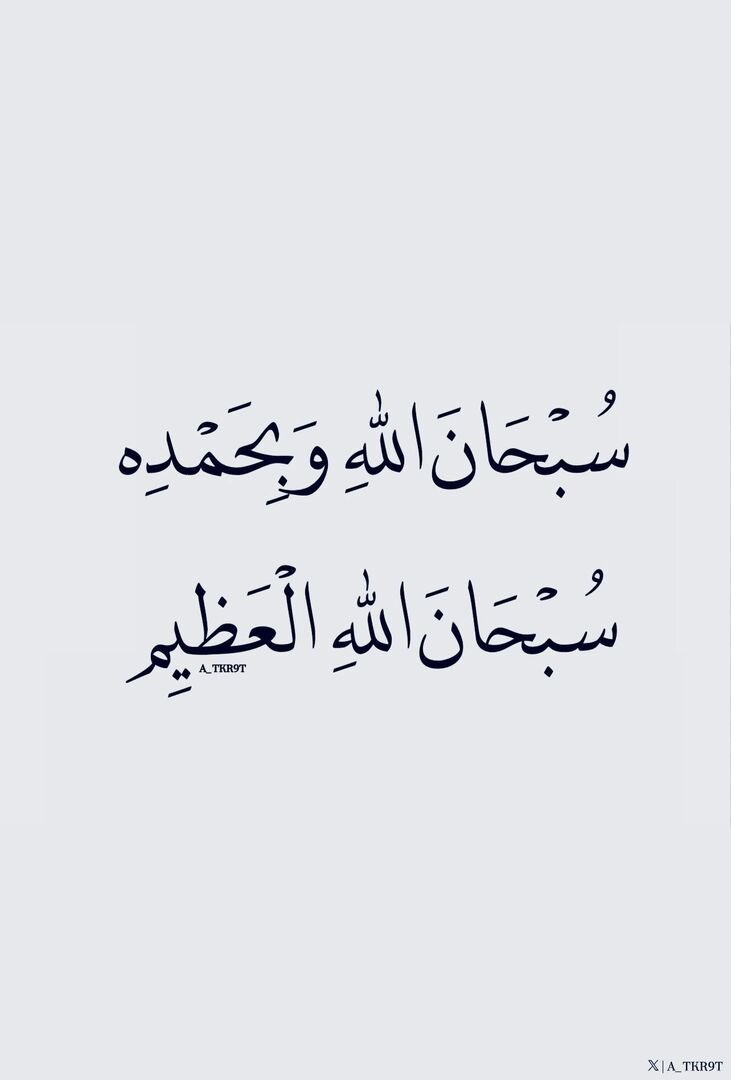 سُبْحَانَ اللهِ وَبِحَمْدِه
سُبْحَانَ اللهِ الْعَظِيمِ
A_TKR9T
𝕏 | A_TKR9T